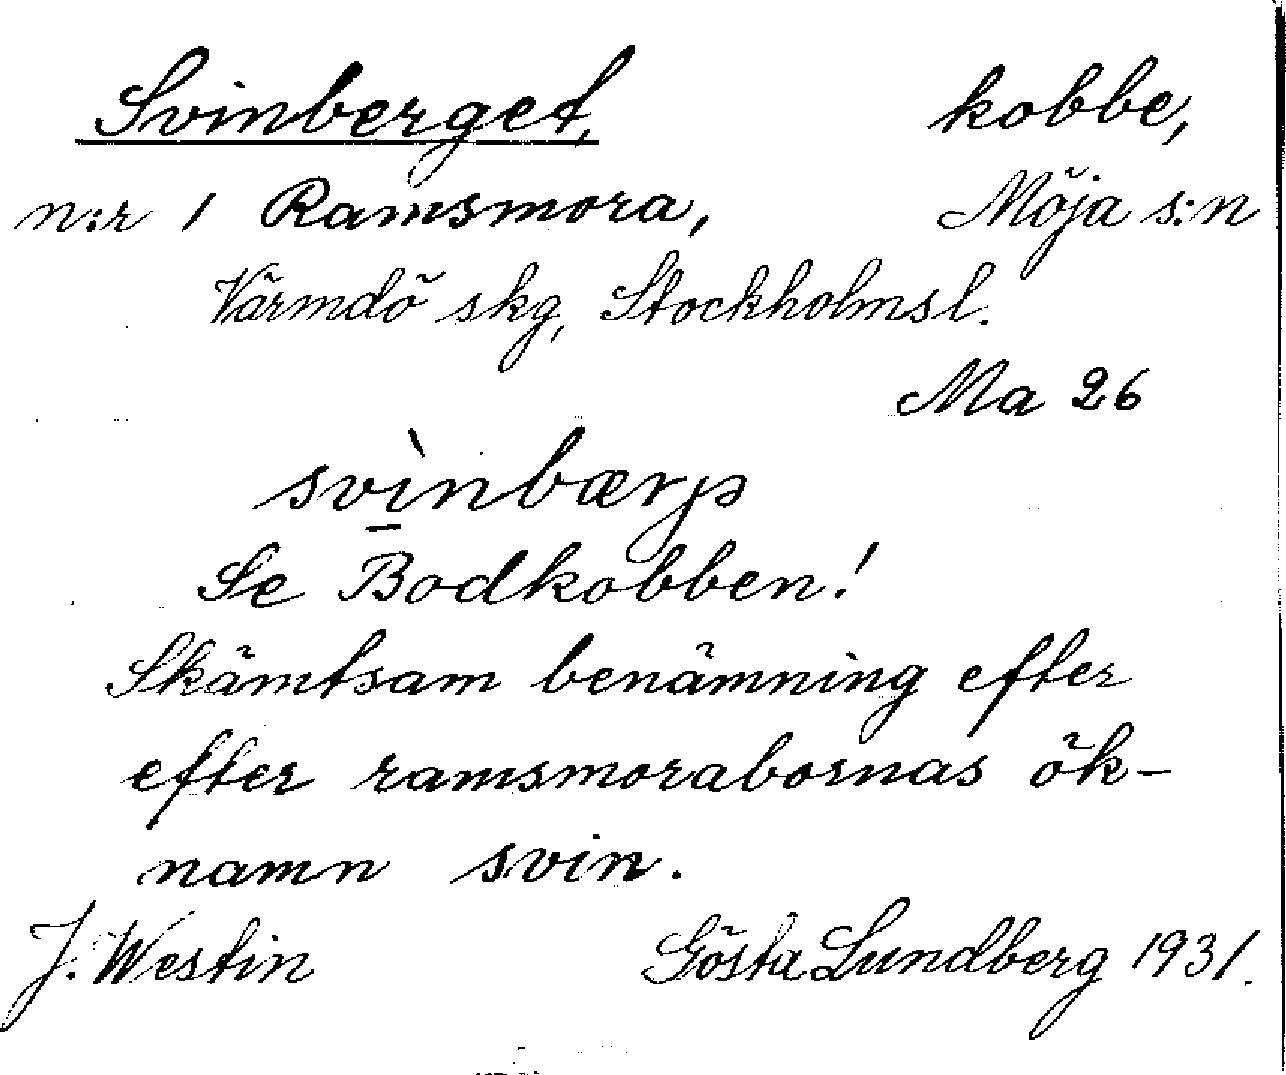 Svinberget, kobbe,
n:r 1 Ramsmora, Möja s:n
Värmdö skg, Stockholmsl.
Ma 26
svì̱nbærjə
Se Bodkobben!
Skämtsam benämning efter
efter ramsmorabornas ök-
namn svin.
J. Westin Gösta Lundberg 1931.